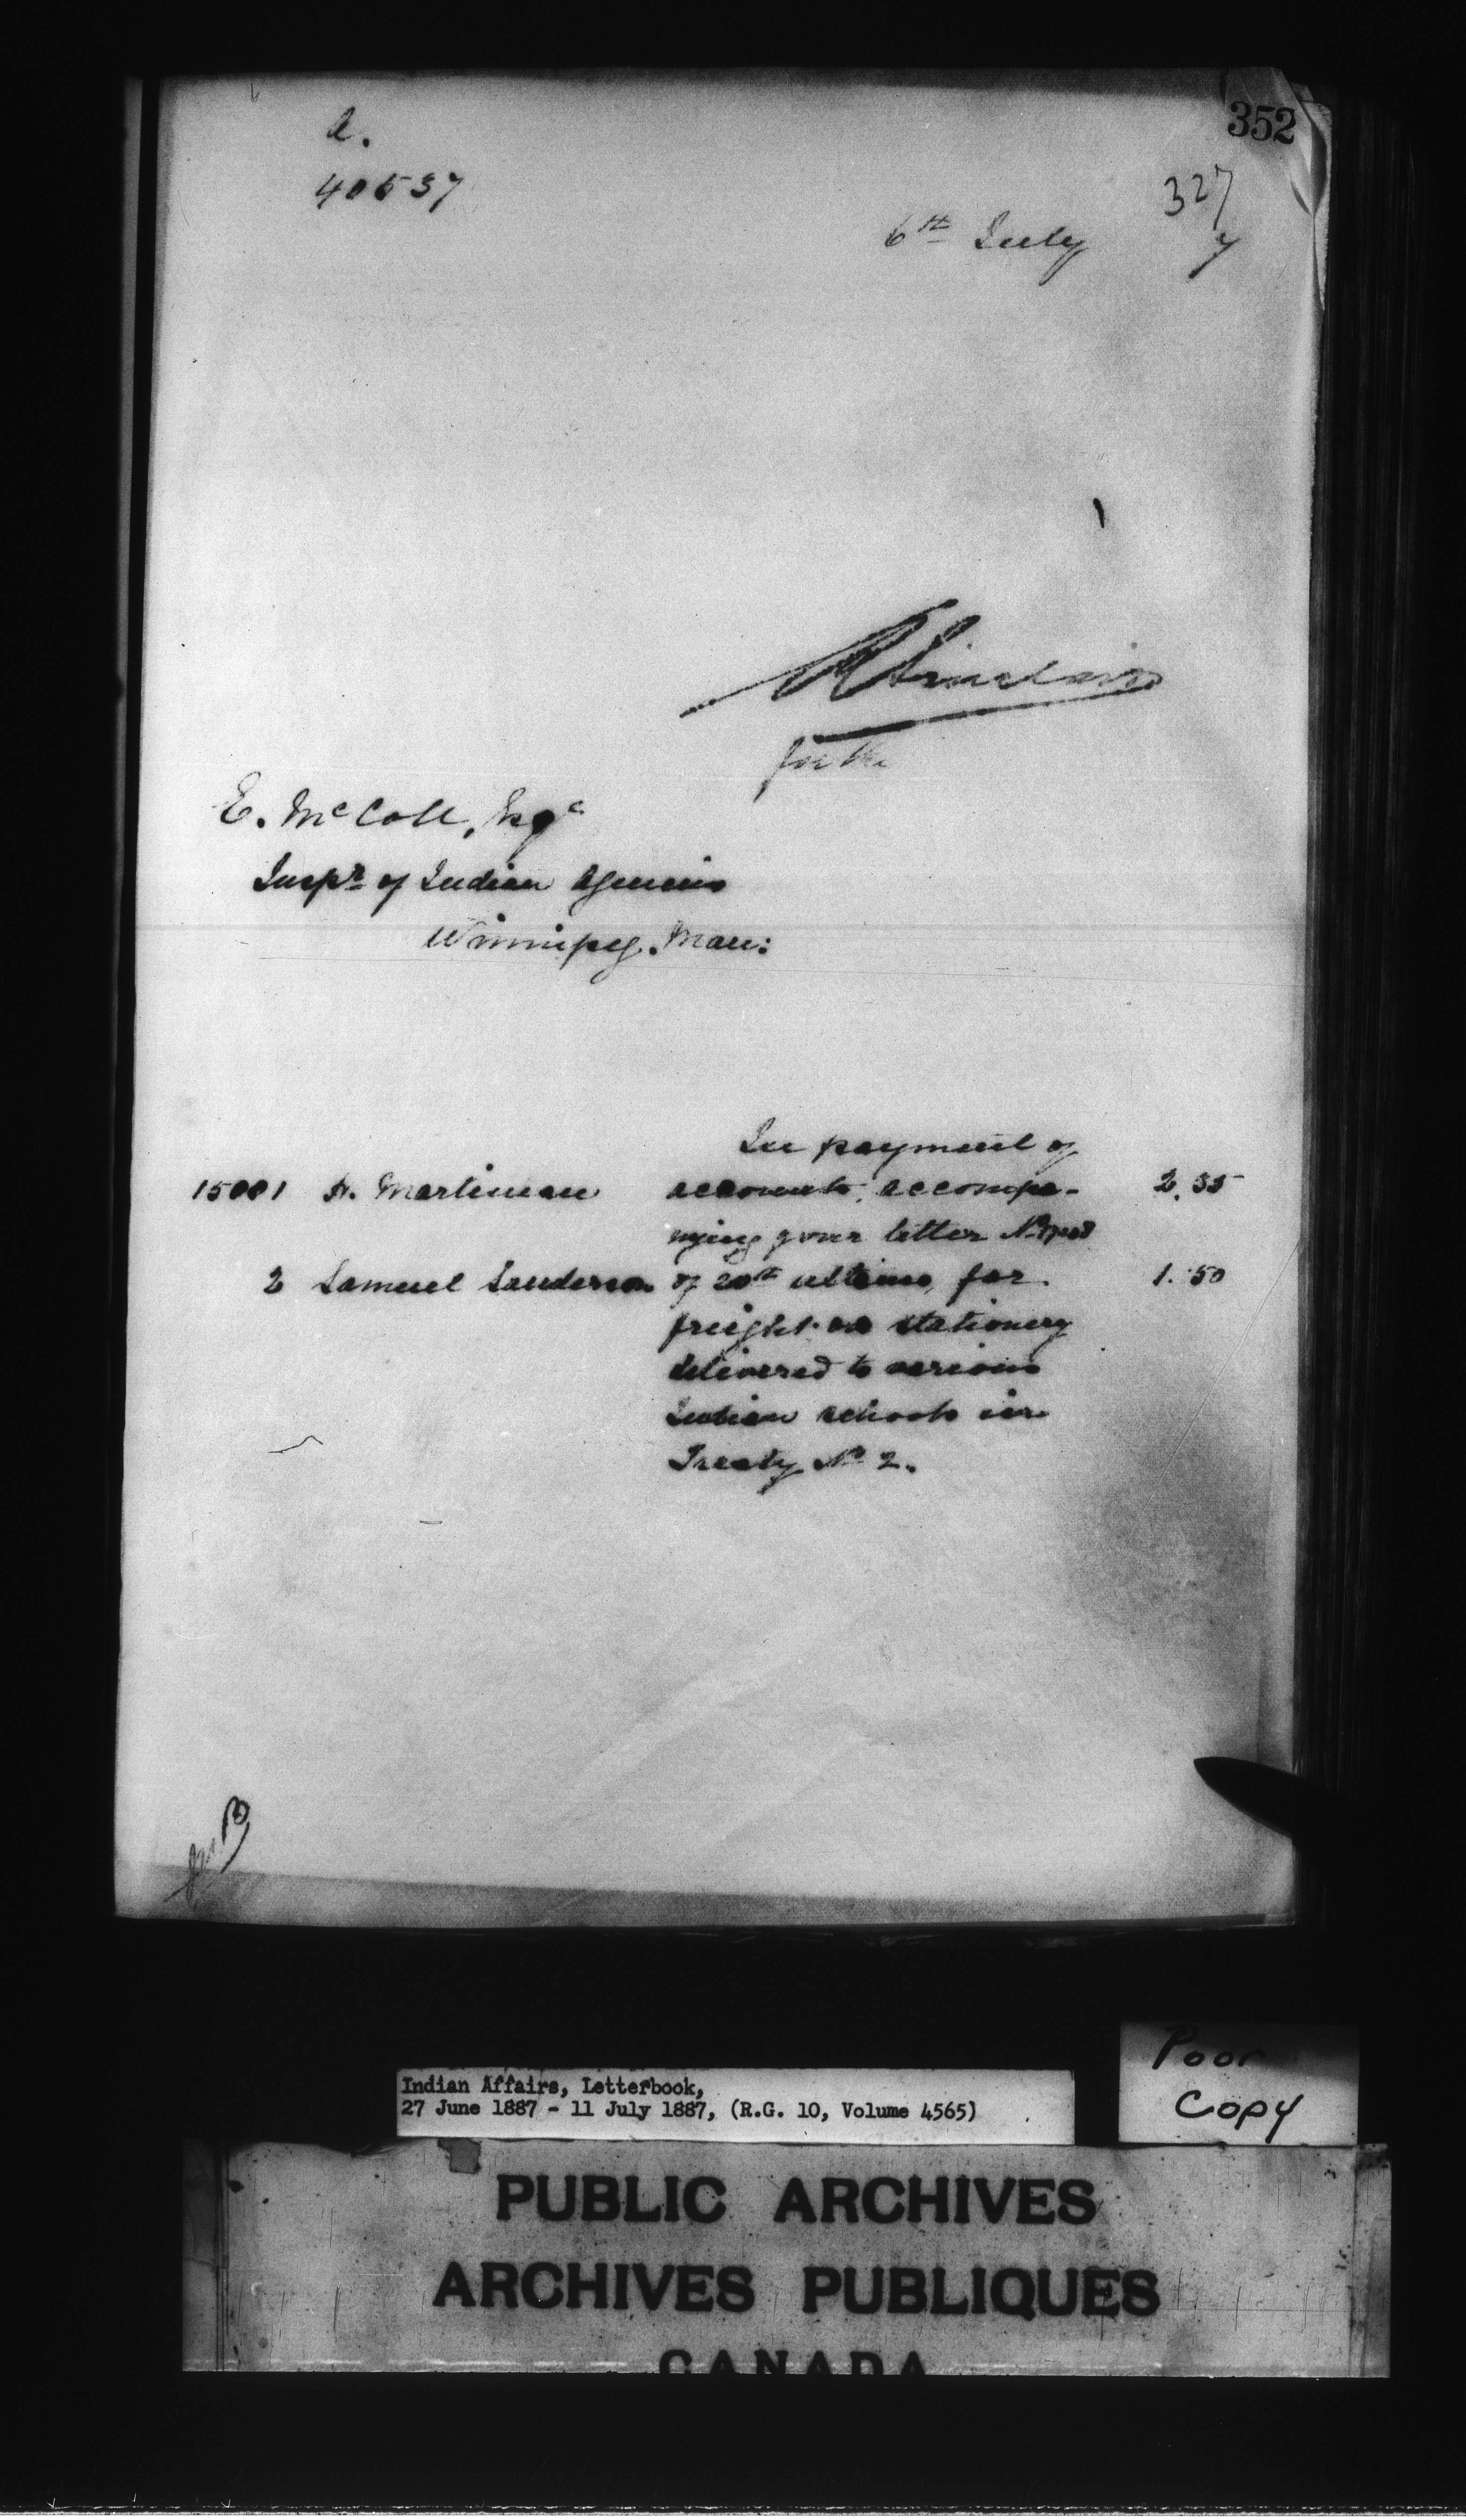 352
A.
40537
327
6th July 7
R Sinclair
for the
E. McColl, Esqe
Inspr of Indian Agencies
Winnipeg. Man:
In payment of
15001 A. Martineau accounts, accompa- 2.35
nying your letter No
2 Samuel Sanderson of 20th ultimo, for 1.50
freight on stationery
delivered to various
Indian schools in
Treaty No 2.
Indian Affairs, Letterbook,
27 June 1887 - 11 July 1887, (R.G. 10, Volume 4565)
Poor
Copy
PUBLIC ARCHIVES
ARCHIVES PUBLIQUES
CANADA